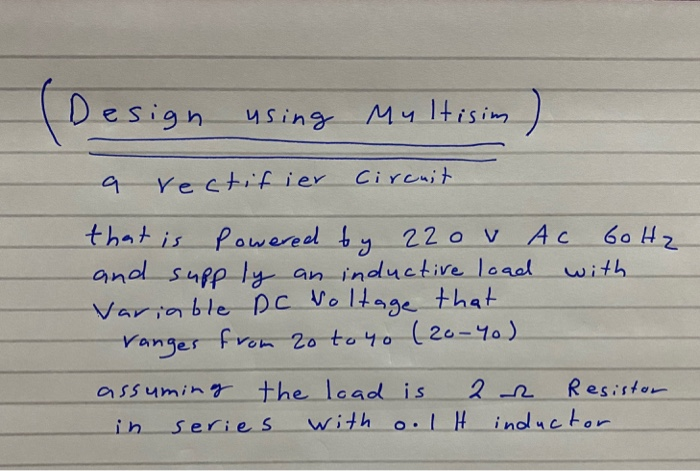 (Design using Multisim)
a rectifier circuit
that is Powered by 220 V AC 60Hz
and supply an inductive load with
Variable DC Voltage that
ranges from 20 to 40 (20-40)
assuming the load is 2 Ω Resistor
in series with 0.1 H inductor